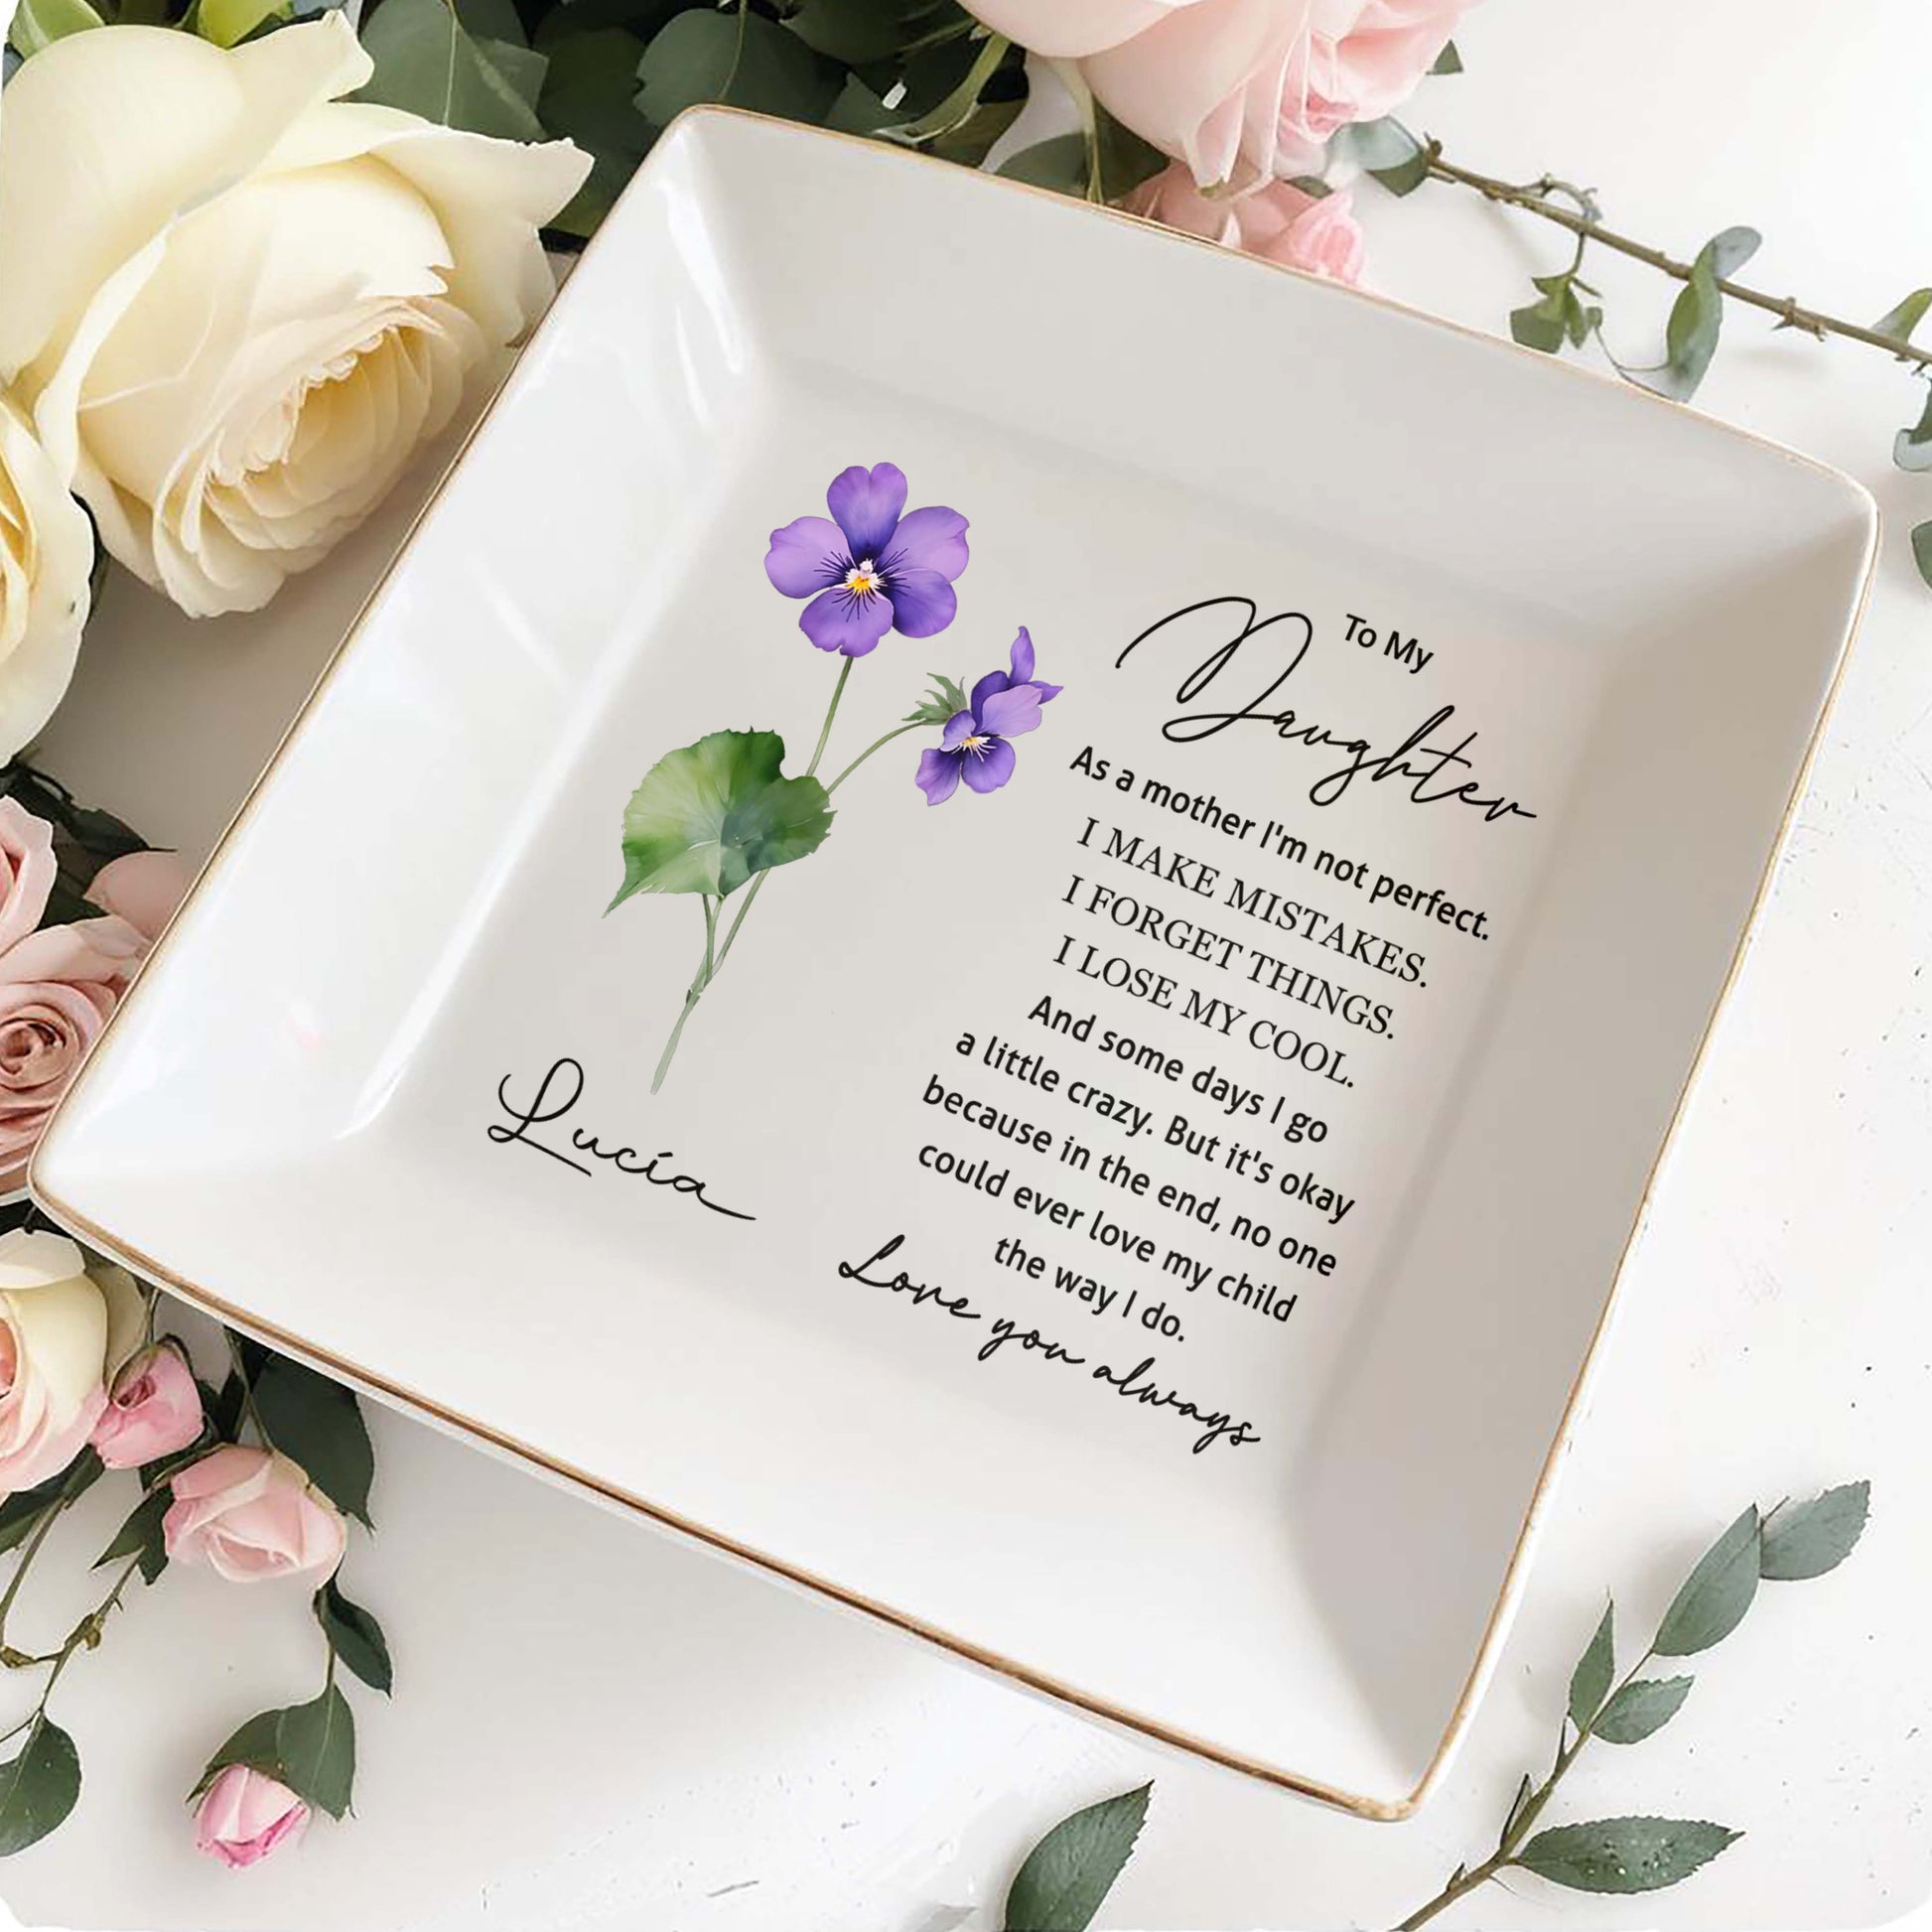 To My
Daughter
As a mother I'm not perfect.
I MAKE MISTAKES.
I FORGET THINGS.
I LOSE MY COOL.
And some days I go
a little crazy. But it's okay
because in the end, no one
could ever love my child
the way I do.
Love you always
Lucía